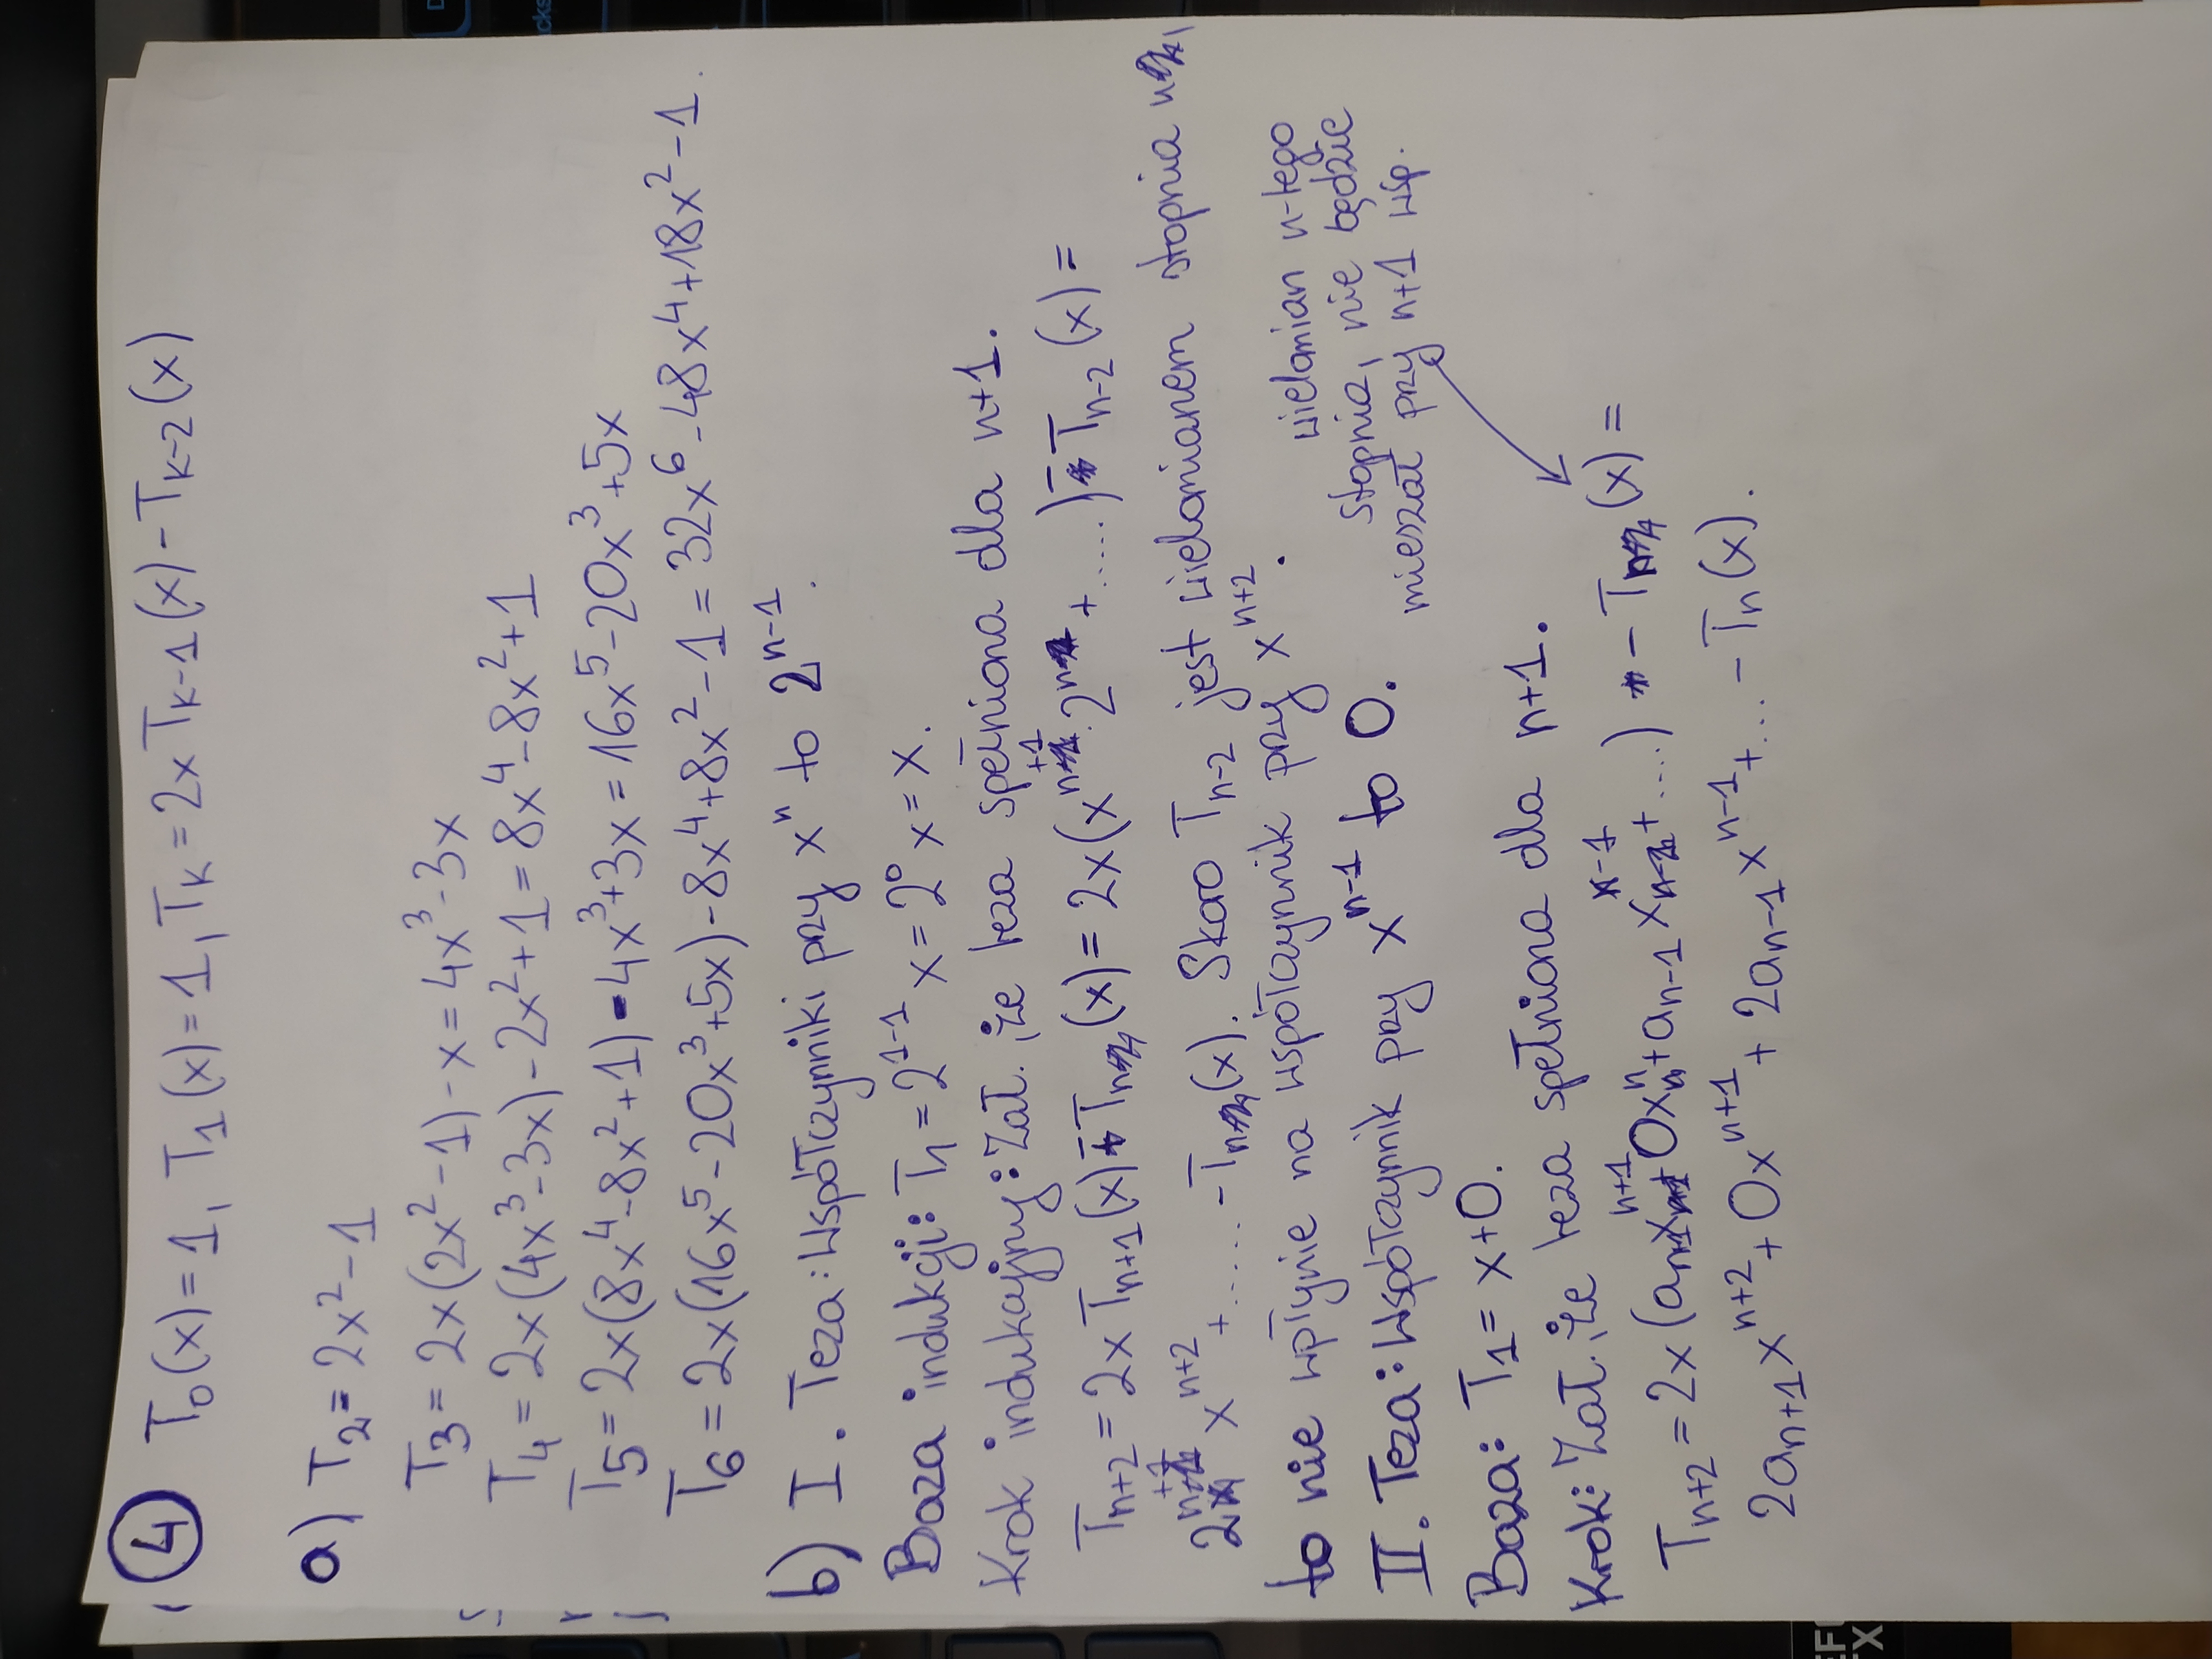 4 T₀(x)=1, T₁(x)=1, Tₖ=2xTₖ₋₁(x)-Tₖ₋₂(x)
a) T₂=2x²-1
T₃=2x(2x²-1)-x=4x³-3x
T₄=2x(4x³-3x)-2x²+1=8x⁴-8x²+1
T₅=2x(8x⁴-8x²+1)-4x³+3x=16x⁵-20x³+5x
T₆=2x(16x⁵-20x³+5x)-8x⁴+8x²-1=32x⁶-48x⁴+18x²-1.
b) I. Teza: Współczynniki przy xⁿ to 2ⁿ⁻¹.
Baza indukcji: T₁=2¹⁻¹x=2⁰x=x.
Krok indukcyjny: Zał., że teza spełniona dla n+1.
Tₙ₊₂=2xTₙ₊₁(x)-Tₙ(x)=2x(xⁿ⁺¹·2ⁿ+.....)-Tₙ₋₂(x)=
2ⁿ⁺¹xⁿ⁺²+.....-Tₙ(x). Skoro Tₙ₋₂ jest wielomianem stopnia n,
to nie wpłynie na współczynnik przy xⁿ⁺².
II. Teza: Współczynnik przy xⁿ⁻¹ to 0.
wielomian n-tego
stopnia, nie będzie
mieszał przy n+1 wsp.
Baza: T₁=x+0.
Krok: Zał., że teza spełniona dla n+1.
Tₙ₊₂=2x(aₙ₊₁xⁿ⁺¹+0xⁿ+aₙ₋₁xⁿ⁻¹+....)-Tₙ(x)=
2aₙ₊₁xⁿ⁺²+0xⁿ⁺¹+2aₙ₋₁xⁿ⁻¹+...-Tₙ(x).